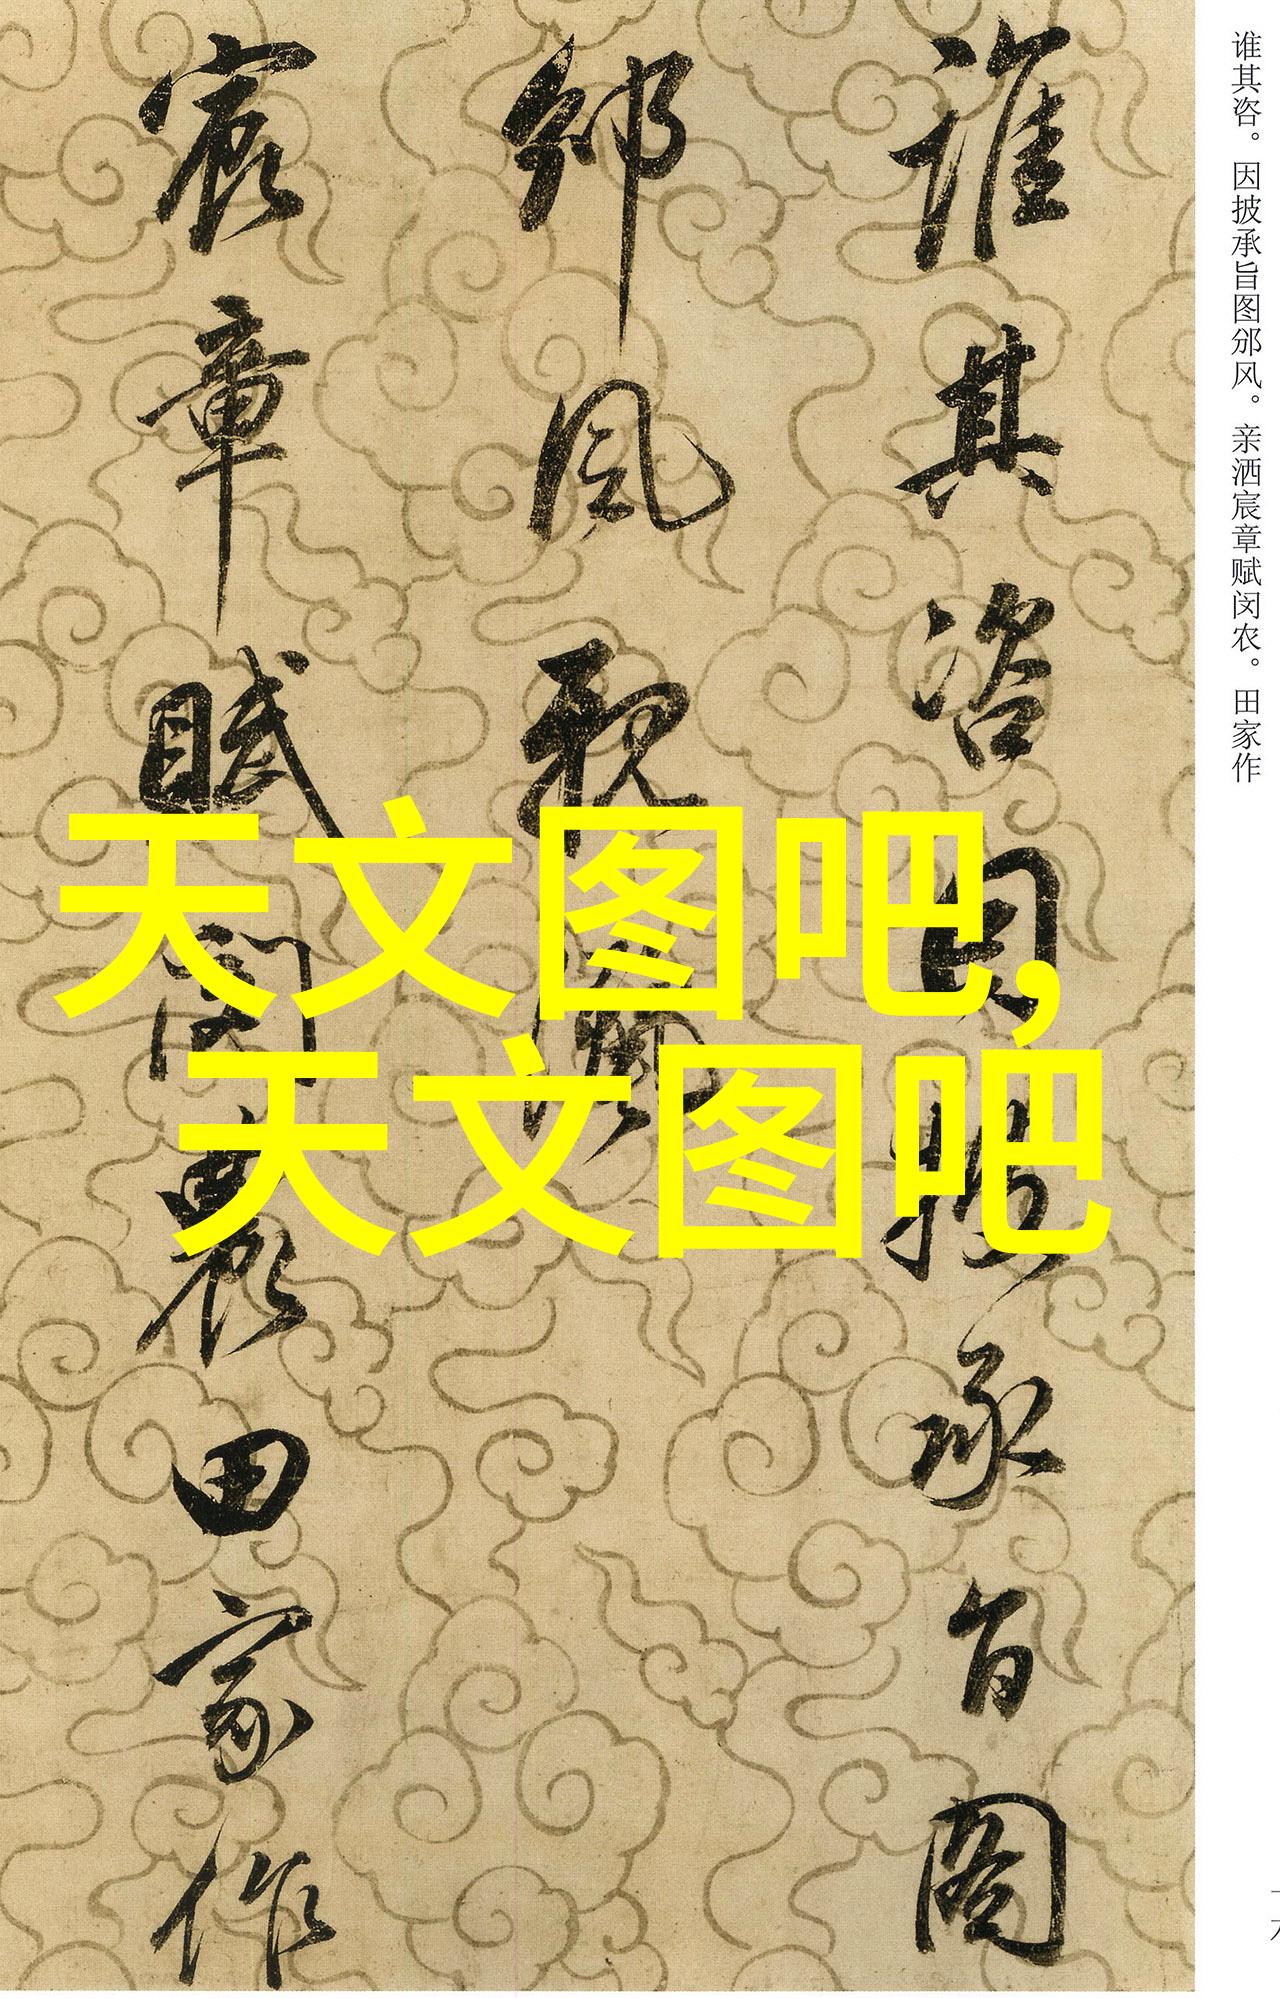 谁其咨。因披承旨图邠风。亲洒宸章赋闵农。田家作
誰其咨因披承旨圖
邠風親灑
宸章賦閔農田家作
天文图吧,
天文图吧